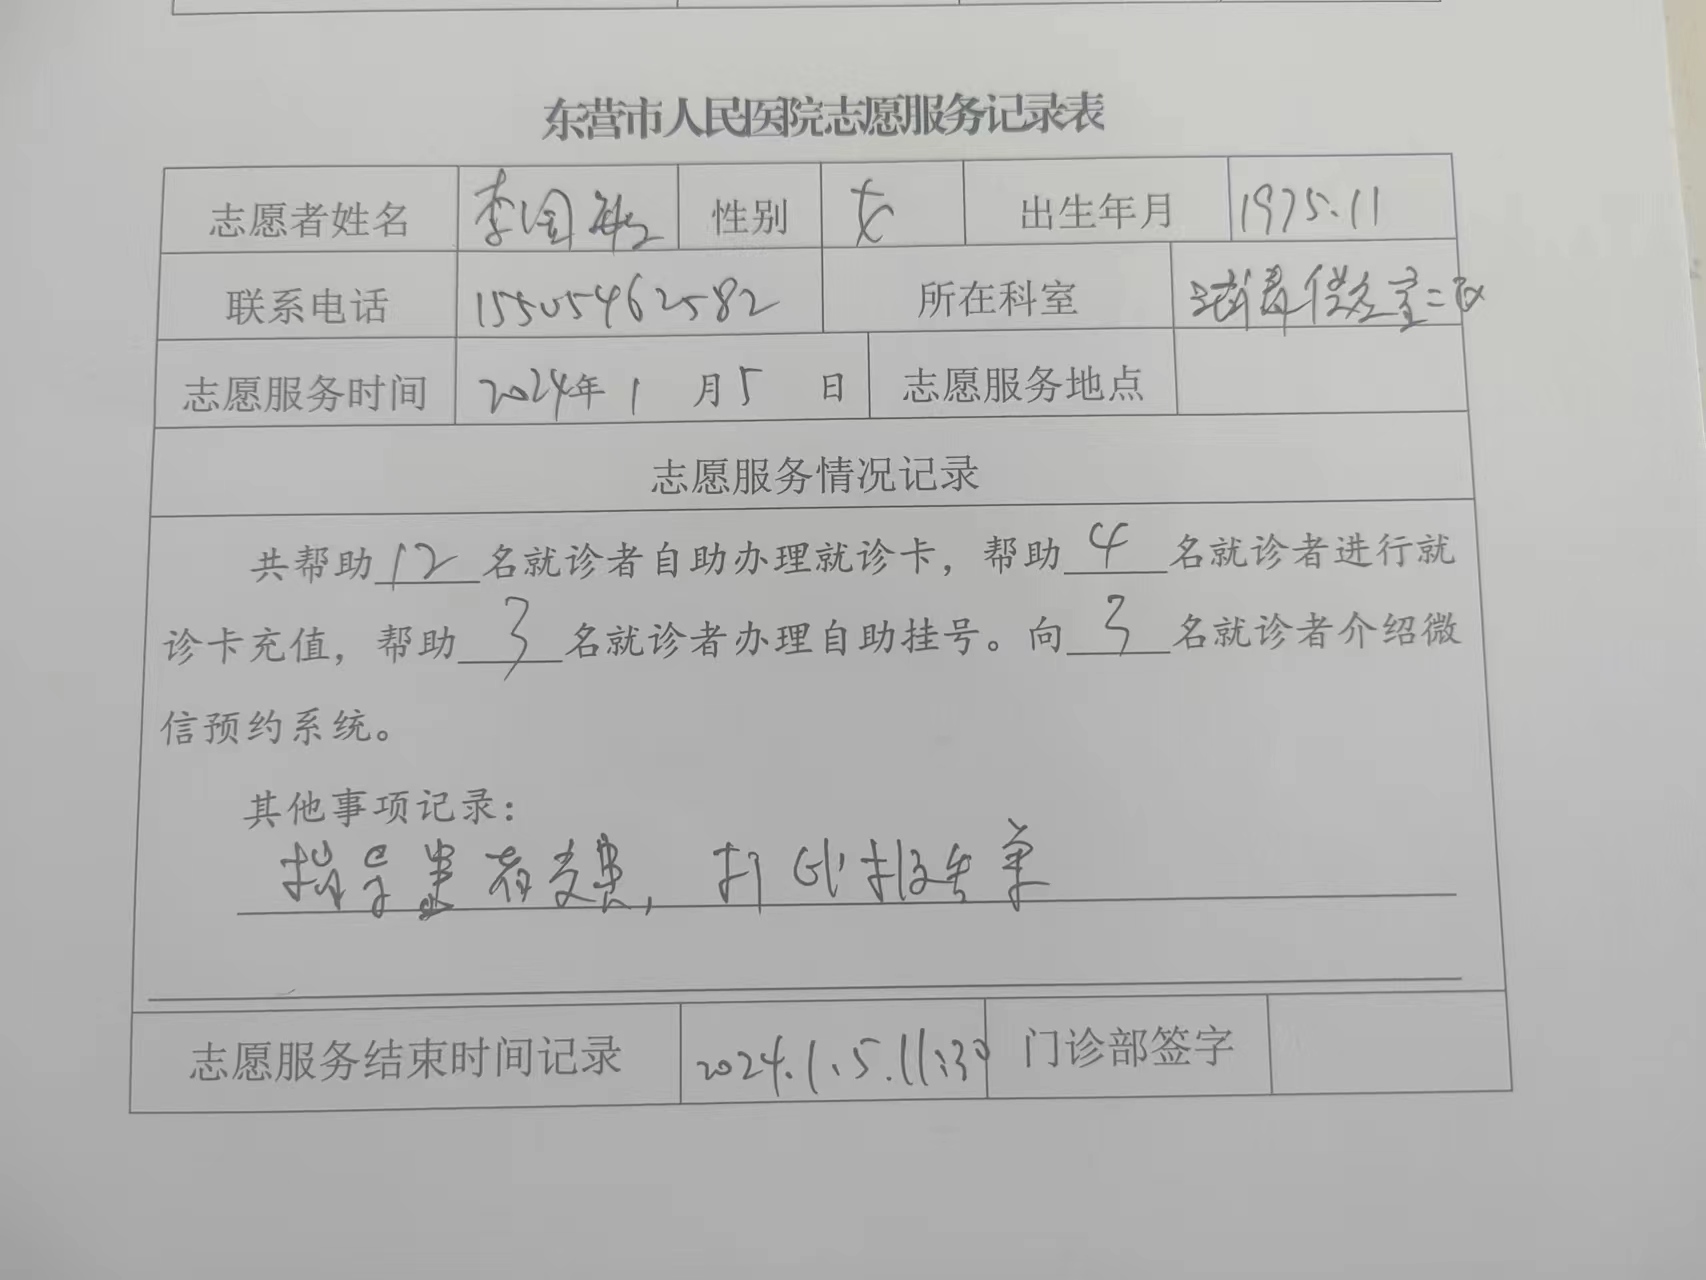 东营市人民医院志愿服务记录表
志愿者姓名 李国敏 性别 女 出生年月 1975.11
联系电话 15505462582 所在科室 二区
志愿服务时间 2024年 1 月 5 日 志愿服务地点
志愿服务情况记录
共帮助 12 名就诊者自助办理就诊卡，帮助 4 名就诊者进行就
诊卡充值，帮助 3 名就诊者办理自助挂号。向 3 名就诊者介绍微
信预约系统。
其他事项记录：
指导患者交费，打印报告单
志愿服务结束时间记录 2024.1.5.11:30 门诊部签字